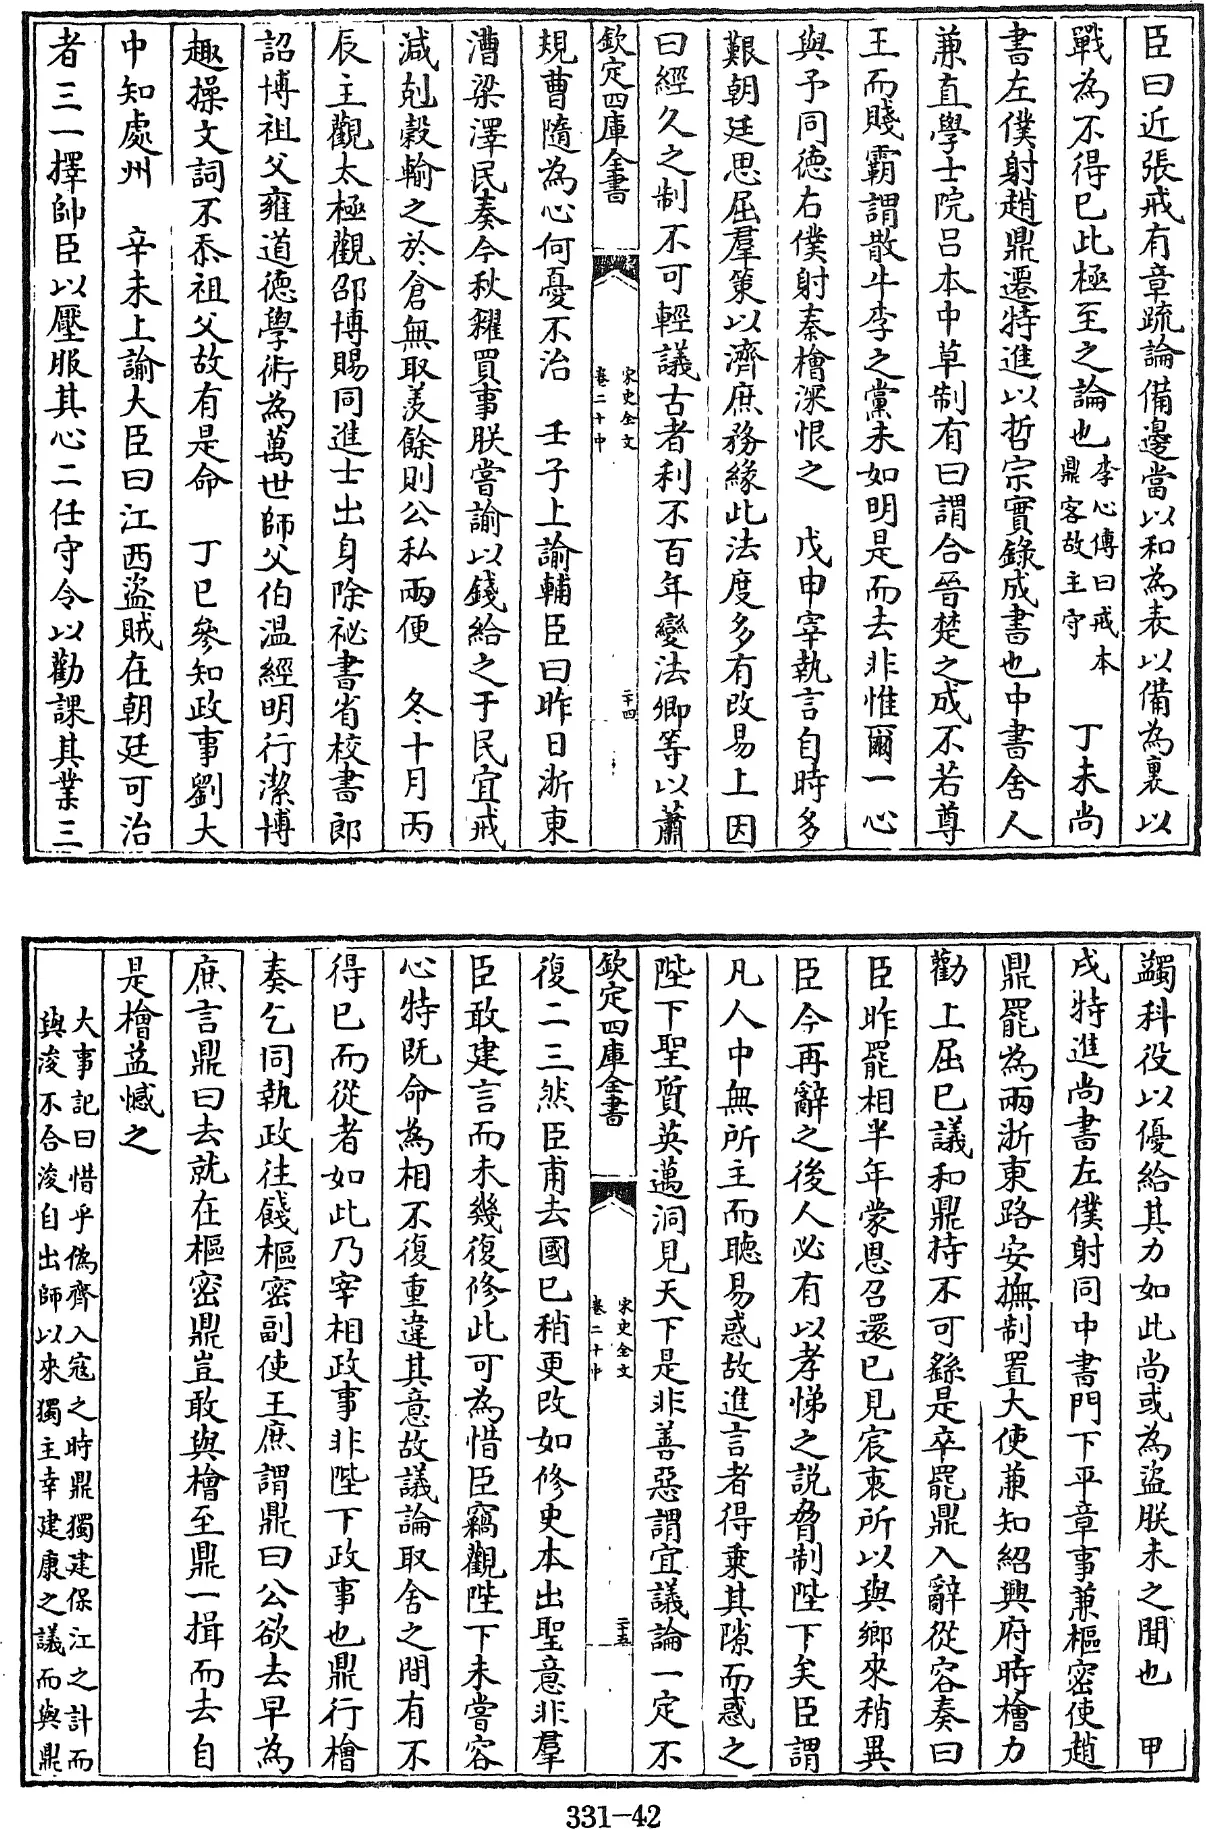 臣曰近張戒有章疏論備邊當以和為表以備為裏以
戰為不得已此極至之論也李心傳曰戒本鼎客故主守　丁未尚
書左僕射趙鼎遷特進以哲宗實錄成書也中書舍人
兼直學士院吕本中草制有曰謂合晉楚之成不若尊
王而賤霸謂散牛李之黨未如明是而去非惟爾一心
與予同德右僕射秦檜深恨之　戊申宰執言自時多
艱朝廷思屈羣策以濟庶務緣此法度多有改易上因
曰經久之制不可輕議古者利不百年變法卿等以蕭
欽定四庫全書
宋史全文
卷二十中
二十四
規曹隨為心何憂不治　壬子上諭輔臣曰昨日浙東
漕梁澤民奏今秋糴買事朕嘗諭以錢給之于民宜戒
減剋穀輸之於倉無取羨餘則公私兩便　冬十月丙
辰主觀太極觀邵博賜同進士出身除祕書省校書郎
詔博祖父雍道德學術為萬世師父伯溫經明行潔博
趣操文詞不忝祖父故有是命　丁巳參知政事劉大
中知處州　辛未上諭大臣曰江西盜賊在朝廷可治
者三一擇帥臣以壓服其心二任守令以勸課其業三
蠲科役以優給其力如此尚或為盜朕未之聞也　甲
戌特進尚書左僕射同中書門下平章事兼樞密使趙
鼎罷為兩浙東路安撫制置大使兼知紹興府時檜力
勸上屈已議和鼎持不可繇是卒罷鼎入辭從容奏曰
臣昨罷相半年蒙恩召還已見宸衷所以與鄉來稍異
臣今再辭之後人必有以孝悌之説脅制陛下矣臣謂
凡人中無所主而聽易惑故進言者得乘其隙而惑之
陛下聖質英邁洞見天下是非善惡謂宜議論一定不
欽定四庫全書
宋史全文
卷二十中
二十五
復二三然臣甫去國已稍更改如修史本出聖意非羣
臣敢建言而未幾復修此可為惜臣竊觀陛下未嘗容
心特既命為相不復重違其意故議論取舍之間有不
得已而從者如此乃宰相政事非陛下政事也鼎行檜
奏乞同執政往餞樞密副使王庶謂鼎曰公欲去早為
庶言鼎曰去就在樞密鼎豈敢與檜至鼎一揖而去自
是檜益憾之
大事記曰惜乎偽齊入寇之時鼎獨建保江之計而
與浚不合浚自出師以來獨主幸建康之議而與鼎
331-42